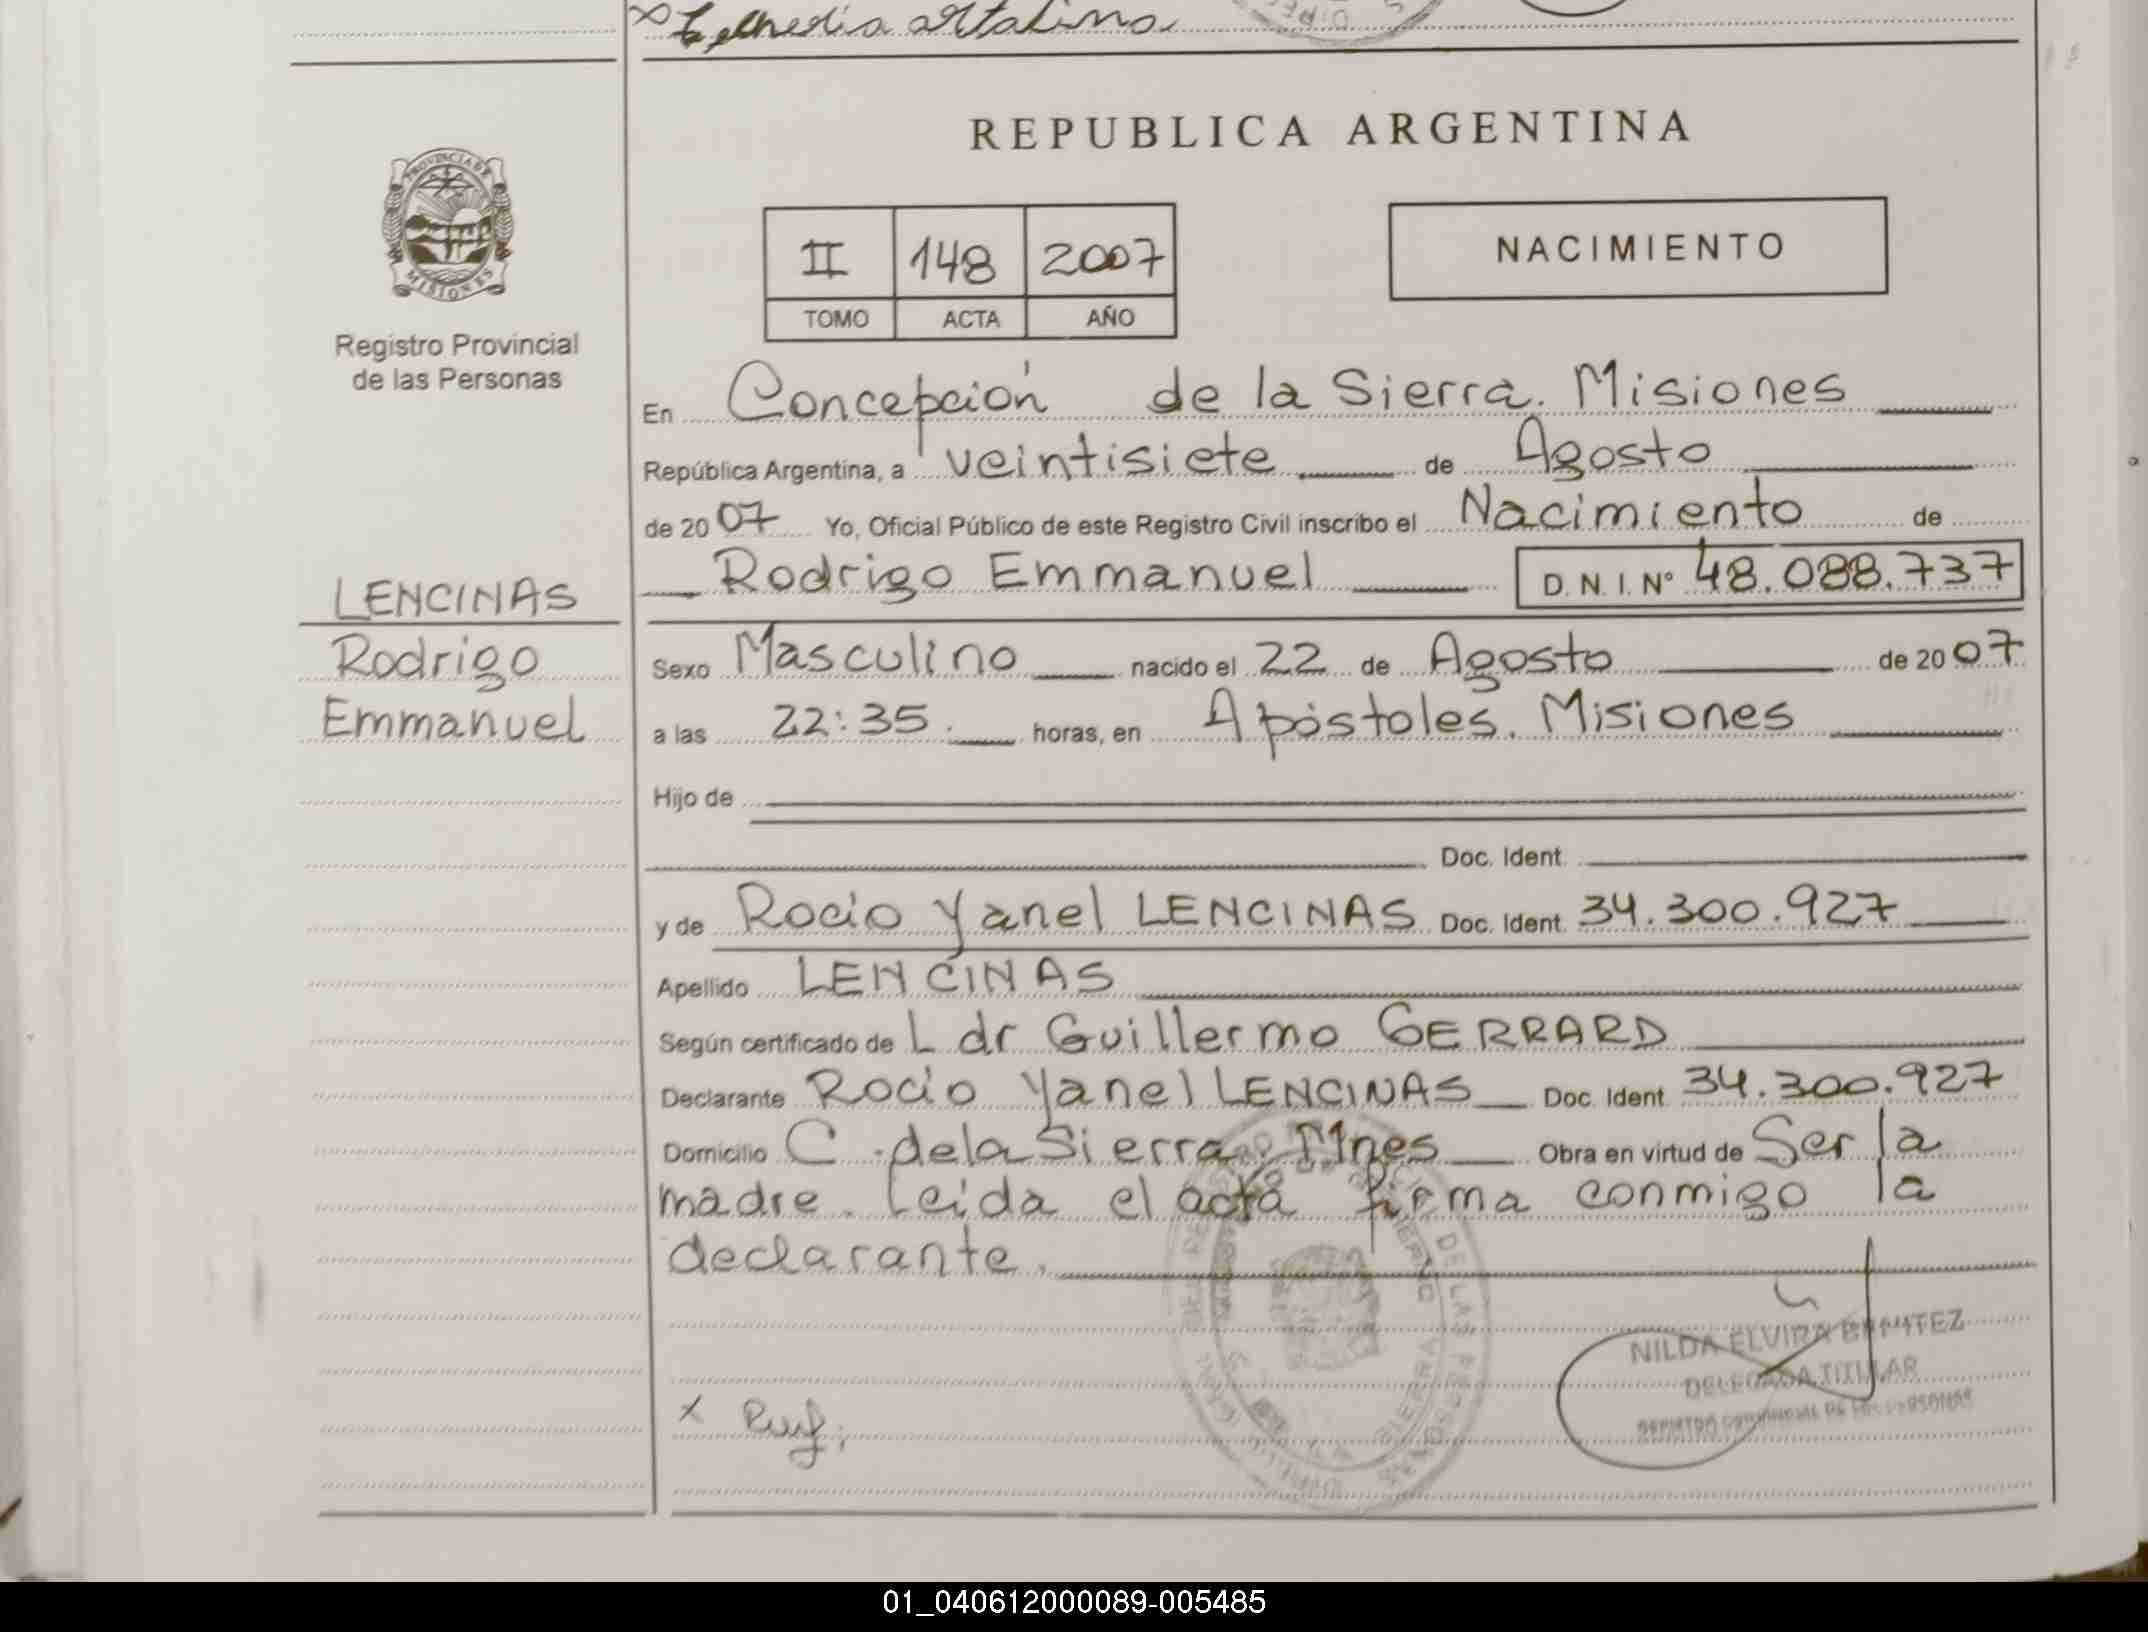 REPUBLICA ARGENTINA
PROVINCIA DE
MISIONES
Registro Provincial
de las Personas
LENCINAS
Rodrigo
Emmanuel
II 148 2007
TOMO ACTA AÑO
NACIMIENTO
En Concepción de la Sierra. Misiones
República Argentina, a veintisiete de Agosto
de 2007 Yo, Oficial Público de este Registro Civil inscribo el Nacimiento de
Rodrigo Emmanuel D. N. I. Nº 48.088.737
Sexo Masculino nacido el 22 de Agosto de 2007
a las 22:35. horas, en Apóstoles. Misiones
Hijo de
Doc. Ident.
y de Rocio Yanel LENCINAS Doc. Ident. 34.300.927
Apellido LENCINAS
Según certificado de L dr Guillermo GERRARD
Declarante Rocio Yanel LENCINAS Doc. Ident. 34.300.927
Domicilio C. de la Sierra. Mnes Obra en virtud de Ser la
madre. Leida el acta firma conmigo la
declarante.
NILDA ELVIRA BENITEZ
DELEGADA TITULAR
REGISTRO PROVINCIAL DE LAS PERSONAS
01_040612000089-005485